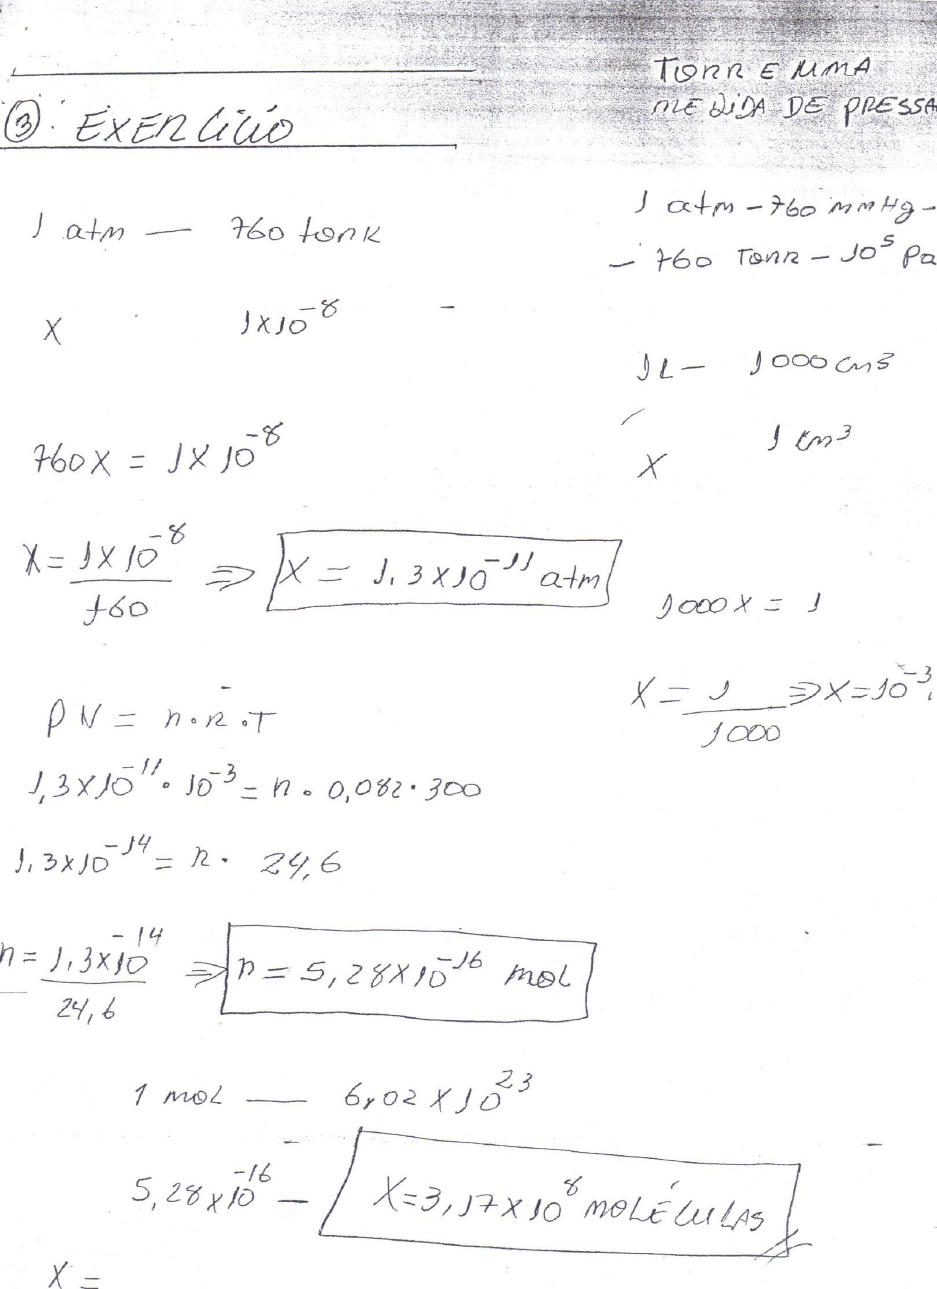 TORR E UMA
MEDIDA DE PRESSA
③. EXERCÍCIO
1 atm — 760 torr
X 1x10^-8
760X = 1X10^-8
X = 1X10^-8/760 ⇒ X = 1.3x10^-11 atm
1 atm - 760 mmHg -
- 760 Torr - 10^5 Pa
1L - 1000 cm3
X 1 cm3
1000X = 1
X = 1/1000 ⇒ X=10^-3.
PV = n.R.T
1,3X10^-11 . 10^-3 = n . 0,082 . 300
1,3x10^-14 = n . 24,6
n = 1,3x10^-14/24,6 ⇒ n = 5,28X10^-16 mol
1 mol — 6,02 X 10^23
5,28x10^-16 — X=3,17x10^8 MOLÉCULAS
X =